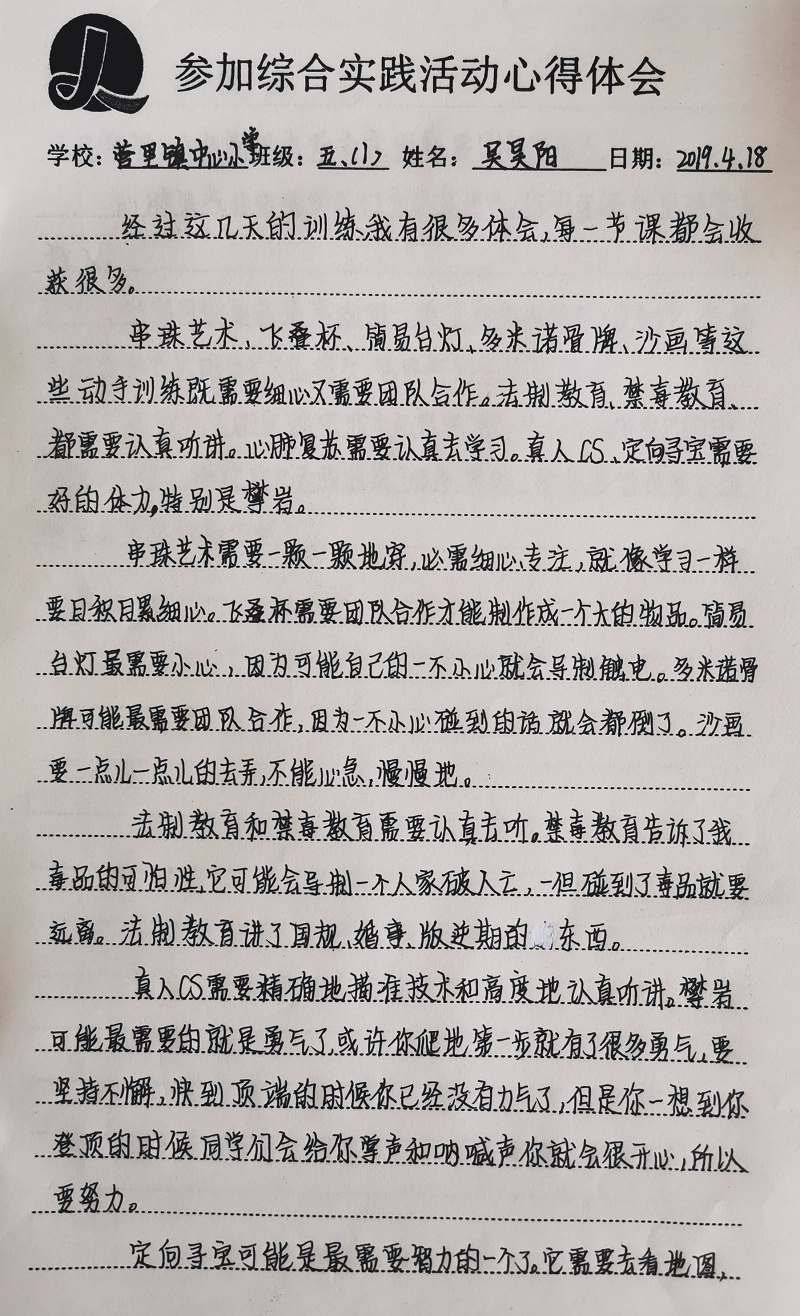 参加综合实践活动心得体会
学校：营里镇中心小学 班级：五、(1) 姓名：吴昊阳 日期：2019.4.18
经过这几天的训练,我有很多体会,每一节课都会收
获很多。
串珠艺术、飞叠杯、简易台灯、多米诺骨牌、沙画等这
些动手训练既需要细心又需要团队合作。法制教育、禁毒教育、
都需要认真听讲。心肺复苏需要认真去学习。真人CS、定向寻宝需要
好的体力,特别是攀岩。
串珠艺术需要一颗一颗地穿,必需细心、专注,就像学习一样
要日积月累细心。飞叠杯需要团队合作才能制作成一个大的物品。简易
台灯最需要小心,因为可能自己的一不小心就会导制触电。多米诺骨
牌可能最需要团队合作,因为一不小心碰到的话就会都倒了。沙画
要一点儿一点儿的去弄,不能心急,慢慢地。
法制教育和禁毒教育需要认真去听。禁毒教育告诉了我
毒品的可怕性,它可能会导制一个人家破人亡,一但碰到了毒品就要
远离。法制教育讲了国规、婚事、版逆期的东西。
真人CS需要精确地描准技术和高度地认真听讲。攀岩
可能最需要的就是勇气了,或许你爬地第一步就有了很多勇气,要
坚持不懈,快到顶端的时候你已经没有力气了,但是你一想到你
登顶的时候同学们会给你掌声和呐喊声你就会很开心,所以
要努力。
定向寻宝可能是最需要努力的一个了。它需要去看地图,